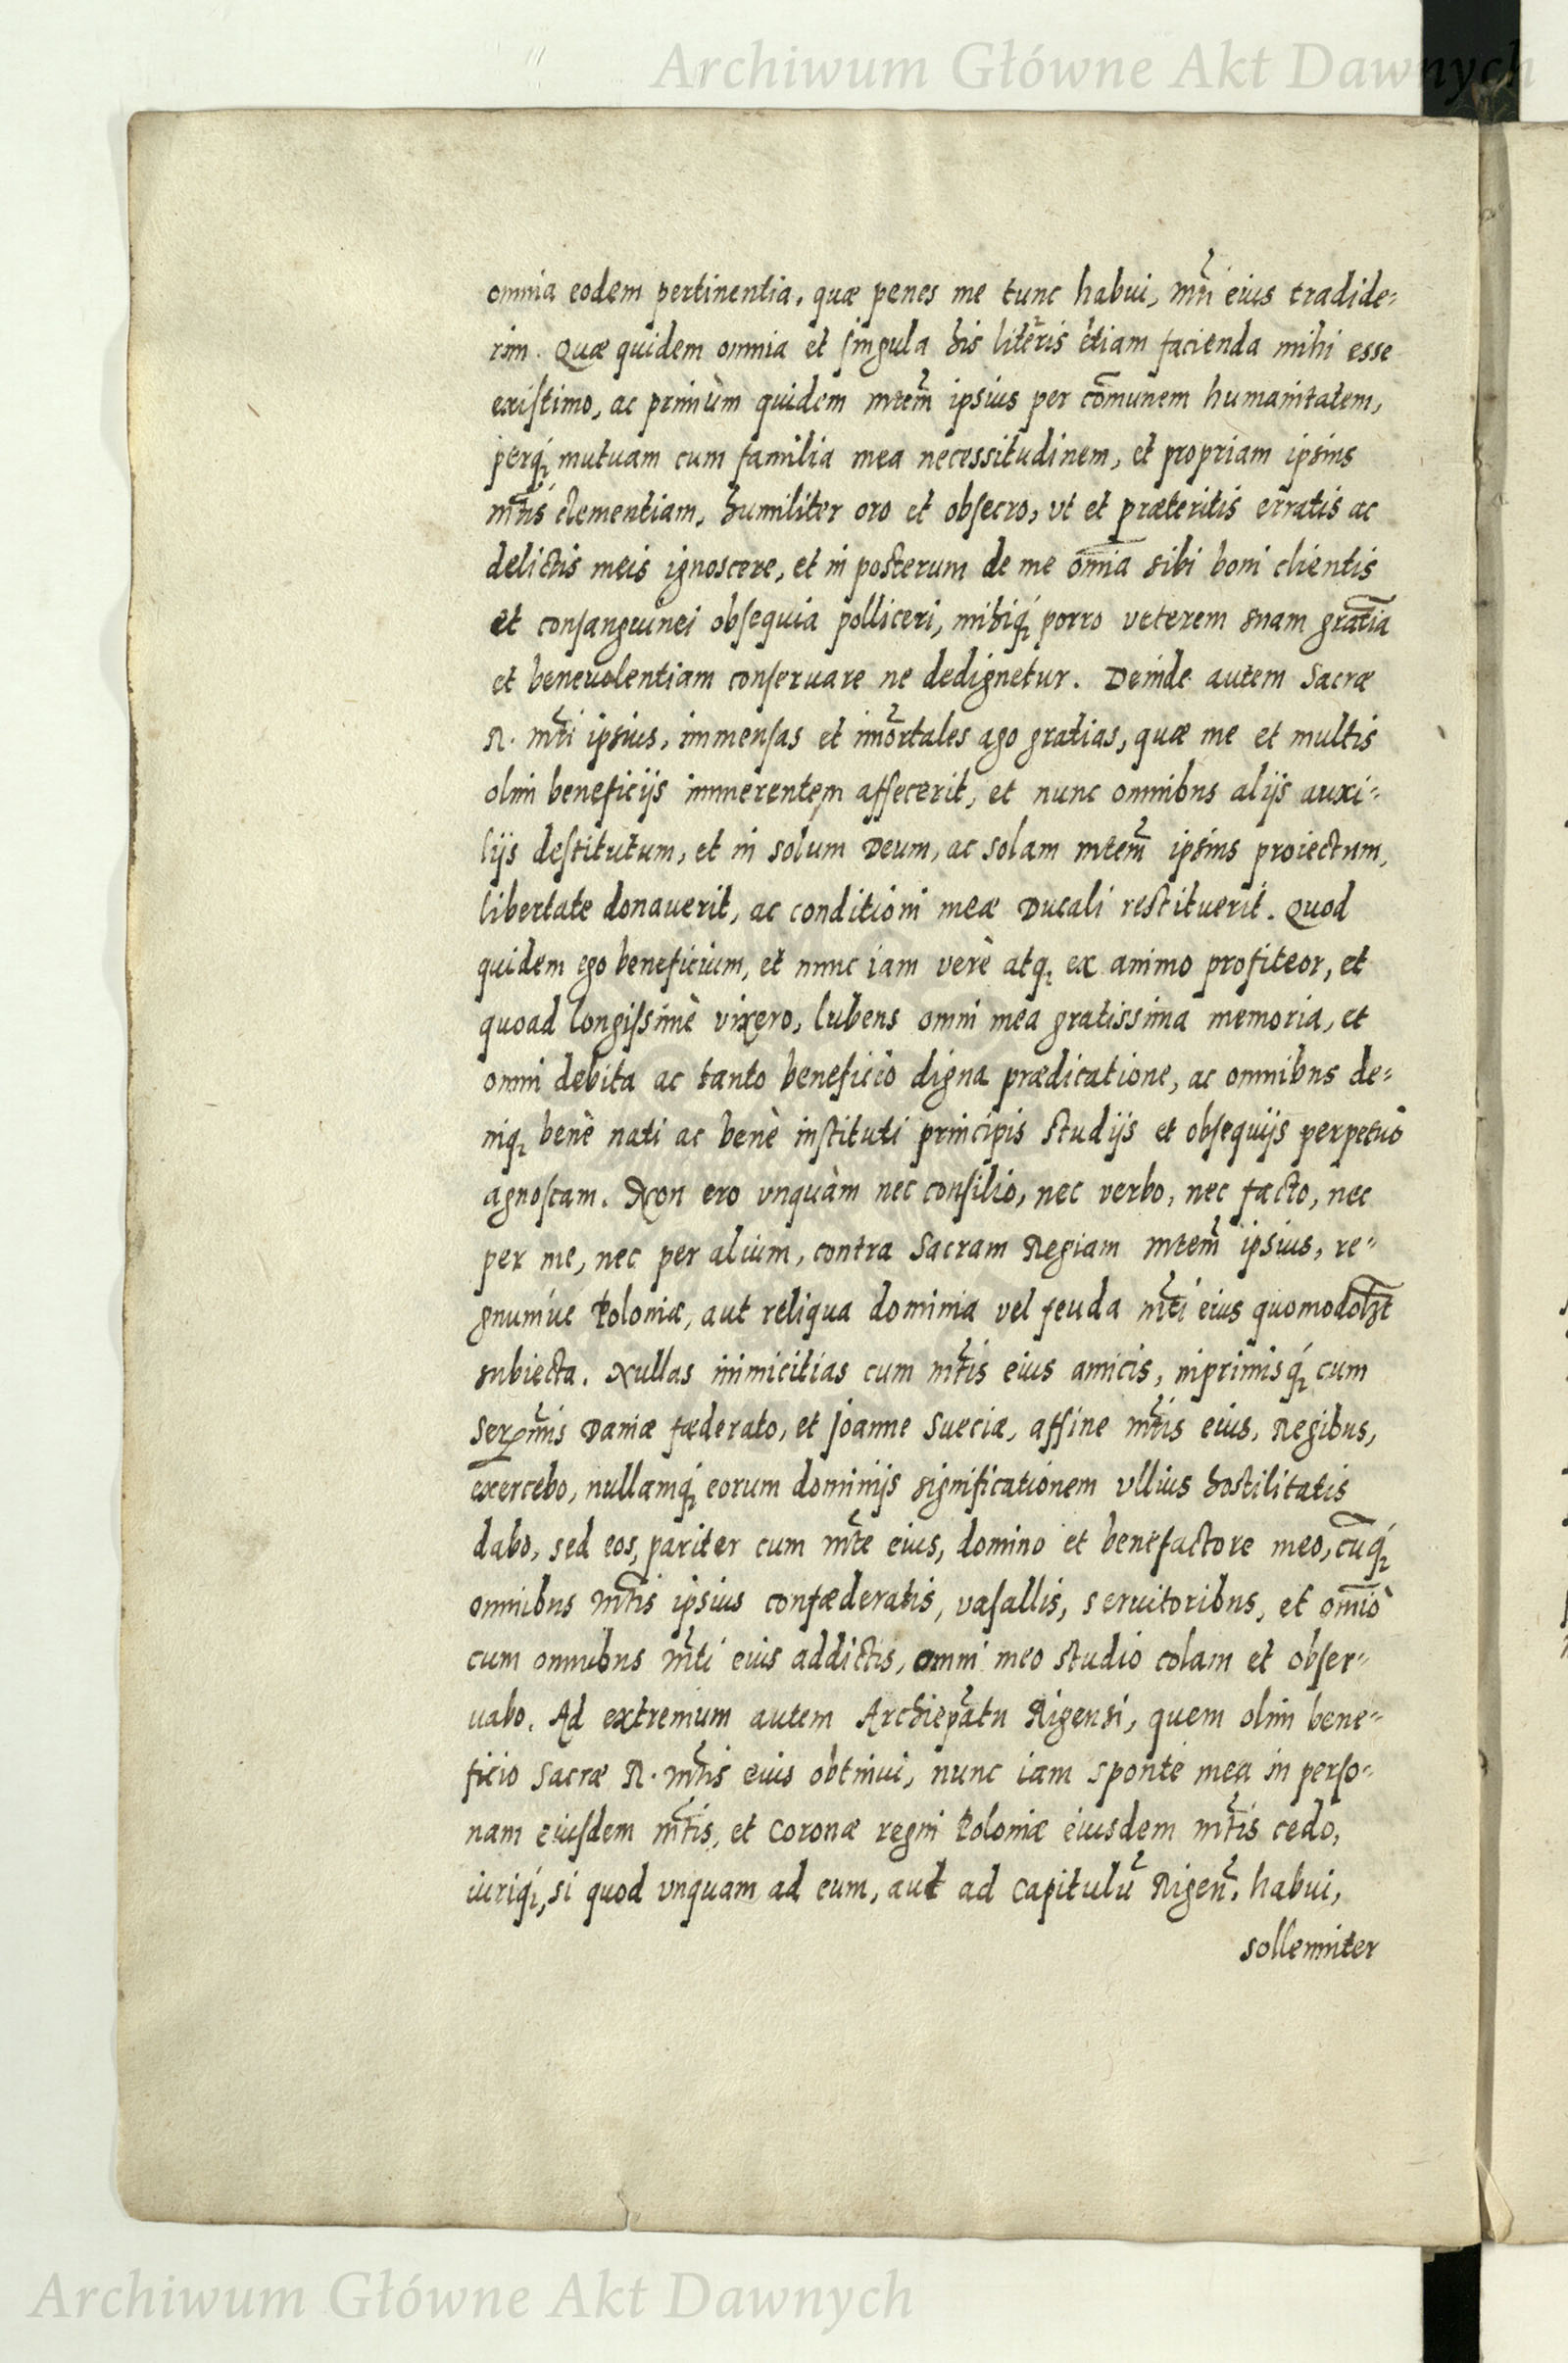 Archiwum Główne Akt Dawnych
omnia eodem pertinentia, quæ penes me tunc habui, mti eius tradide=
rim. Quæ quidem omnia et singula his literis etiam facienda mihi esse
existimo, ac primùm quidem mtem ipsius per cōmunem humanitatem,
perq́; mutuam cum familia mea necessitudinem, et propriam ipsius
mtis clementiam, humiliter oro et obsecro, vt et præteritis erratis ac
delictis meis ignoscere, et in posterum de me om̄ia sibi boni clientis
et consanguinei obsequia polliceri, mihiq́; porro veterem suam gratiā
et beneuolentiam conseruare ne dedignetur. Deinde autem Sacræ
R. mti ipsius, immensas et imōrtales ago gratias, quæ me et multis
olim beneficijs immerentem affecerit, et nunc omnibus alijs auxi=
lijs destitutum, et in solum Deum, ac solam mtem ipsius proiectum,
libertate donauerit, ac conditioni meæ Ducali restituerit. Quod
quidem ego beneficium, et nunc iam verè atq; ex animo profiteor, et
quoad longissimè vixero, lubens omni mea gratissima memoria, et
omni debita ac tanto beneficio digna prædicatione, ac omnibus de=
niq; benè nati ac benè instituti principis studijs et obsequijs perpetuò
agnoscam. Non ero vnquàm nec consilio, nec verbo, nec facto, nec
per me, nec per alium, contra Sacram Regiam mtem ipsius, re=
gnumúe Poloniæ, aut reliqua dominia vel feuda mti eius quomodolzt
subiecta. Nullas inimicitias cum mtis eius amicis, inprimisq́; cum
Sermis Daniæ fæderato, et Joanne Sueciæ, affine mtis eius, Regibus,
exercebo, nullamq́; eorum dominijs significationem vllius hostilitatis
dabo, sed eos, pariter cum mte eius, domino et benefactore meo, cūq́;
omnibus mtis ipsius confæderatis, vasallis, seruitoribus, et om̄iò
cum omnibus mti eius addictis, omni meo studio colam et obser=
uabo. Ad extremum autem Archiepatu Rigensi, quem olim bene=
ficio Sacræ R. mtis eius obtinui, nunc iam sponte mea in perso=
nam eiusdem mtis, et Coronæ regni Poloniæ eiusdem mtis cedo,
iuriq́;, si quod vnquam ad eum, aut ad Capitulū Rigen̄, habui,
sollemniter
Archiwum Główne Akt Dawnych